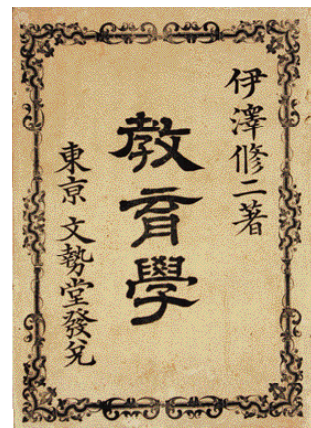 伊澤修二著
教育學
東京 文勢堂發兌